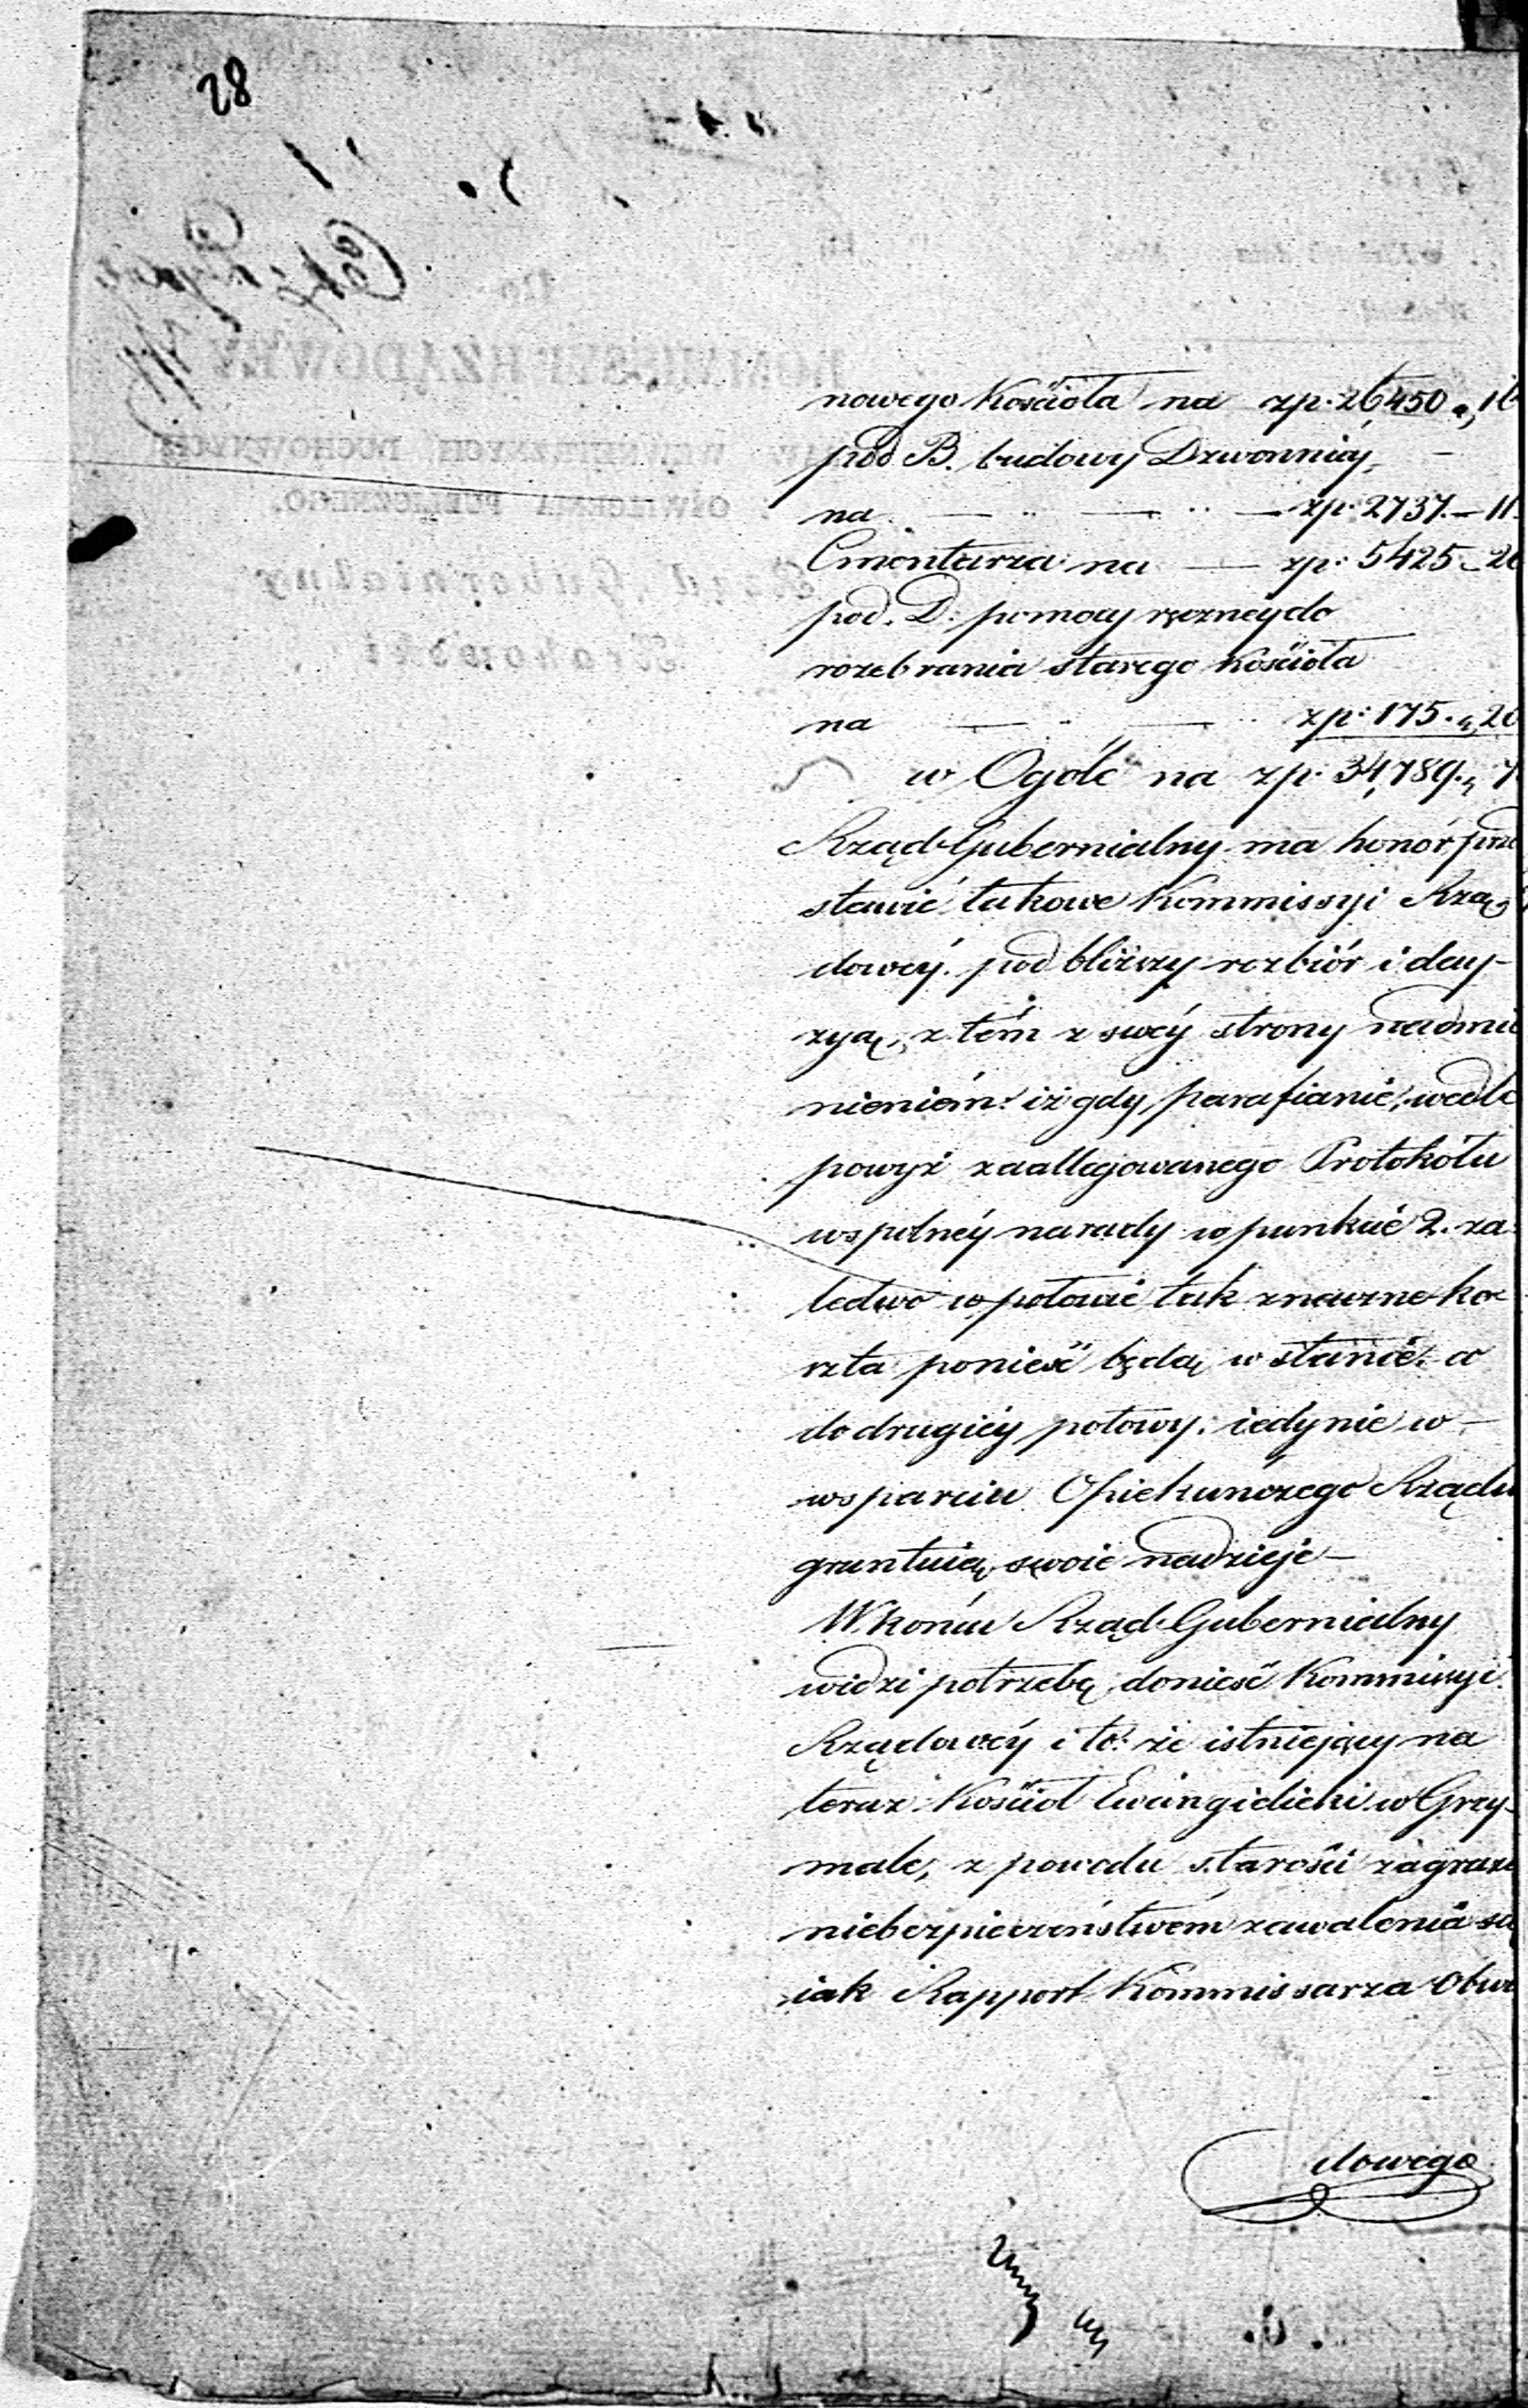 28
nowego Kościoła na zp. 26,450 „ 16
pod B. budowy Dzwonnicy,
na — „ — „ — zp. 2737. — 11.
Cmentarza na — zp: 5425 „ 20
pod. D: pomocy ręczney do
rozebrania starego Kościoła
na — „ — „ zp: 175. „ 20
w Ogóle na zp. 34,789. „ 7
Rząd Gubernialny ma honór prze
stawić takowe Kommissyi Rzą-
dowéy. pod bliższy rozbiór i decy-
zyą, z tém z swéy strony nadmie
nieniém: iż gdy, parafianie, wedle
powyż zaallegowanego Protokółu
wspólnéy narady w punkcie 2. za
ledwo w połowie tak znaczne ko-
szta ponieść będą w stanie. co
do drugiéy połowy: iedynie w —
wsparciu Opiekunczego Rządu
gruntuią swoie nadzieje —
W końcu Rząd Gubernialny
widzi potrzebę donieść Kommissyi
Rządowéy i to: że istniejący na
teraz Kościół Ewangielicki w Grzy-
male, z powodu starości zagraża
niebezpieczeństwém zawalenia się
iak Rapport Kommissarza Obwo
dowego